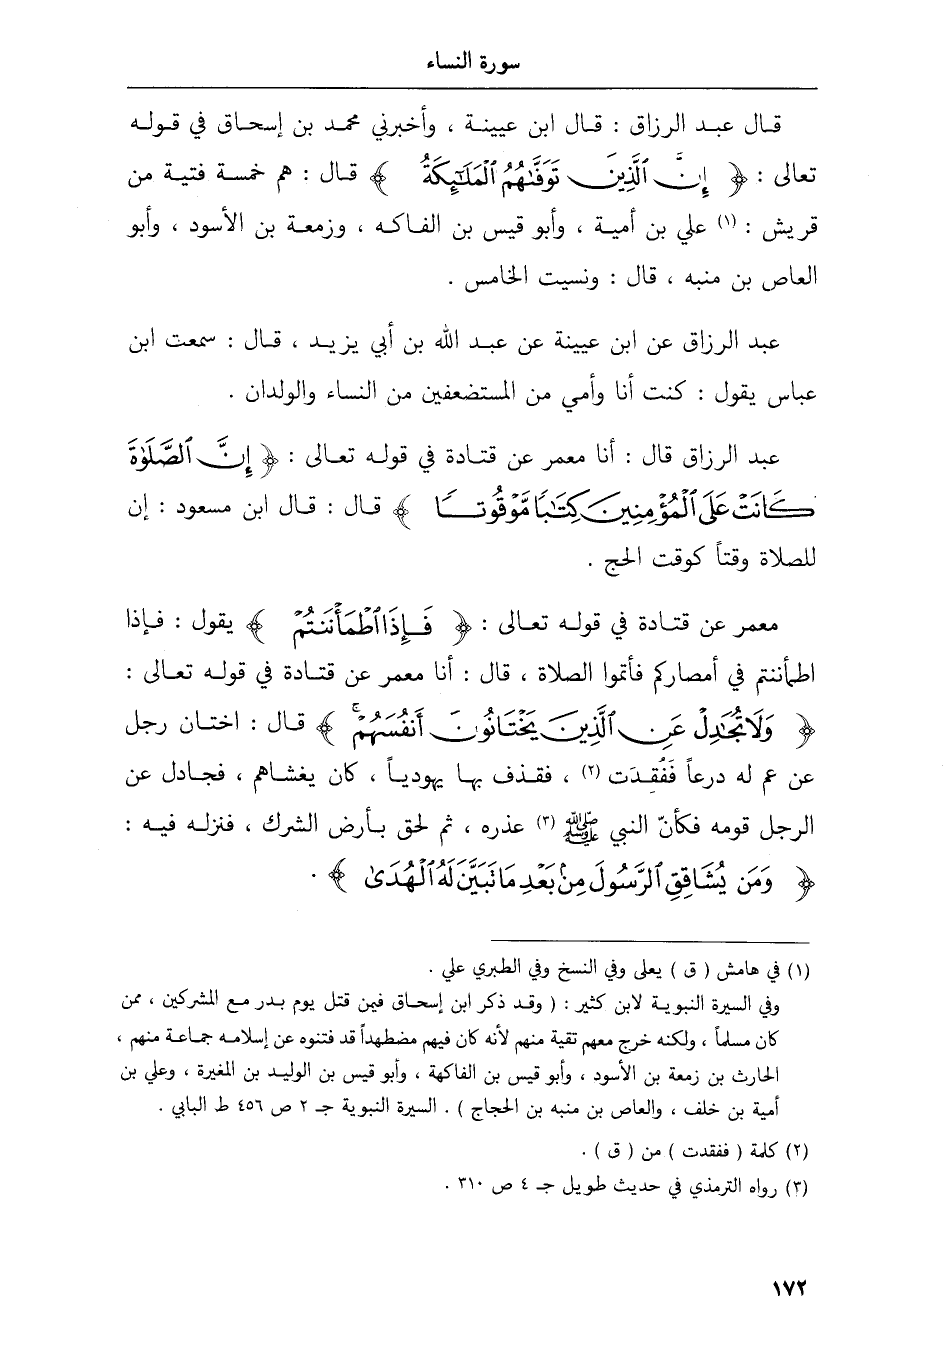 سورة النساء
قال عبد الرزاق : قال ابن عيينة ، وأخبرني محمد بن إسحاق في قوله
تعالى : ﴿ إِنَّ ٱلَّذِينَ تَوَفَّىٰهُمُ ٱلْمَلَٰٓئِكَةُ ﴾ قال : هم خمسة فتية من
قريش : (١) علي بن أمية ، وأبو قيس بن الفاكه ، وزمعة بن الأسود ، وأبو
العاص بن منبه ، قال : ونسيت الخامس .
عبد الرزاق عن ابن عيينة عن عبد الله بن أبي يزيد ، قال : سمعت ابن
عباس يقول : كنت أنا وأمي من المستضعفين من النساء والولدان .
عبد الرزاق قال : أنا معمر عن قتادة في قوله تعالى : ﴿ إِنَّ ٱلصَّلَوٰةَ
كَانَتْ عَلَى ٱلْمُؤْمِنِينَ كِتَٰبًا مَّوْقُوتًا ﴾ قال : قال ابن مسعود : إن
للصلاة وقتاً كوقت الحج .
معمر عن قتادة في قوله تعالى : ﴿ فَإِذَا ٱطْمَأْنَنتُمْ ﴾ يقول : فإذا
اطمأننتم في أمصاركم فأتموا الصلاة ، قال : أنا معمر عن قتادة في قوله تعالى :
﴿ وَلَا تُجَٰدِلْ عَنِ ٱلَّذِينَ يَخْتَانُونَ أَنفُسَهُمْ ۚ ﴾ قال : اختان رجل
عن عم له درعاً فَفُقِدَت (٢) ، فقذف بها يهودياً ، كان يغشاهم ، فجادل عن
الرجل قومه فكأنّ النبي ﷺ (٣) عذره ، ثم لحق بأرض الشرك ، فنزله فيه :
﴿ وَمَن يُشَاقِقِ ٱلرَّسُولَ مِنۢ بَعْدِ مَا تَبَيَّنَ لَهُ ٱلْهُدَىٰ ﴾ .
(١) في هامش ( ق ) يعلى وفي النسخ وفي الطبري علي .
وفي السيرة النبوية لابن كثير : ( وقد ذكر ابن إسحاق فيمن قتل يوم بدر مع المشركين ، ممن
كان مسلماً ، ولكنه خرج معهم تقية منهم لأنه كان فيهم مضطهداً قد فتنوه عن إسلامه جماعة منهم ،
الحارث بن زمعة بن الأسود ، وأبو قيس بن الفاكهة ، وأبو قيس بن الوليد بن المغيرة ، وعلي بن
أمية بن خلف ، والعاص بن منبه بن الحجاج ) . السيرة النبوية جـ ٢ ص ٤٥٦ ط البابي .
(٢) كلمة ( ففقدت ) من ( ق ) .
(٣) رواه الترمذي في حديث طويل جـ ٤ ص ٣١٠ .
١٧٢